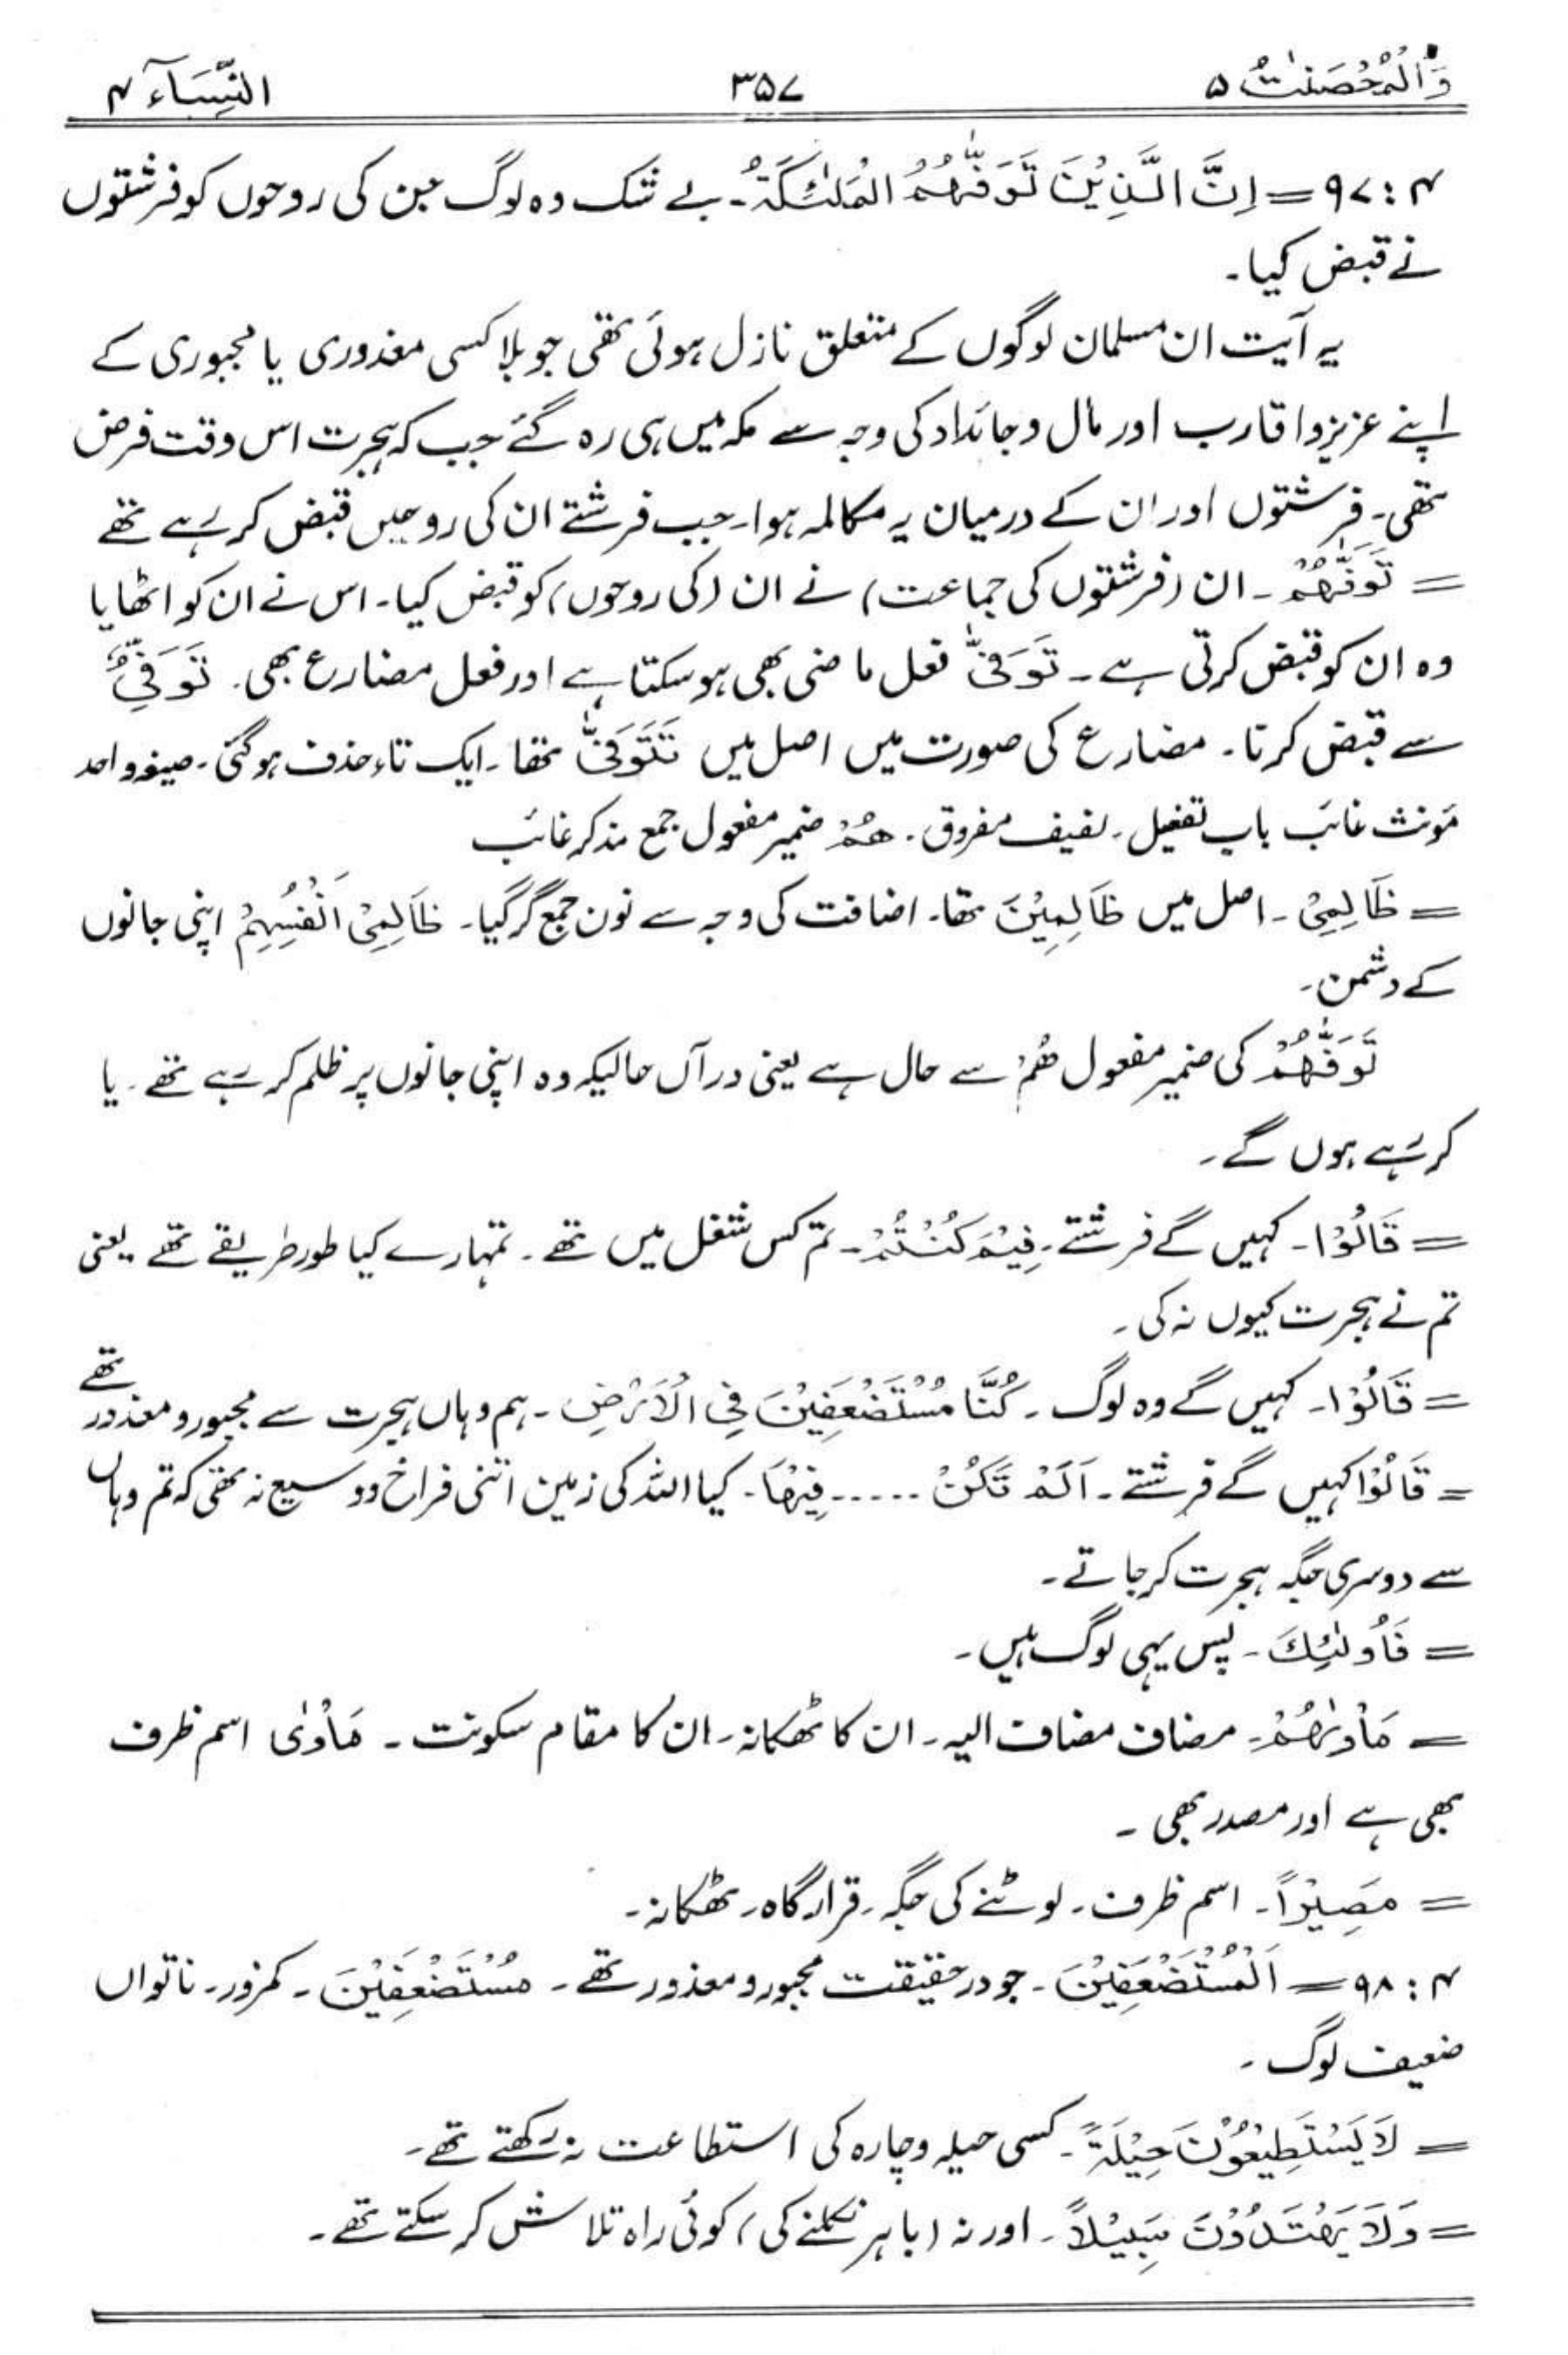 وَالْمُحْصَنٰتُ ۵ ۳۵۷ النِّسَآء ۴
۴ : ۹۷ = اِنَّ الَّذِيْنَ تَوَفّٰهُمُ الْمَلٰئِكَةُ۔ بے شک وہ لوگ جن کی روحوں کو فرشتوں
نے قبض کیا۔
یہ آیت ان مسلمان لوگوں کے متعلق نازل ہوئی تھی جو بلا کسی معذوری یا مجبوری کے
اپنے عزیز و اقارب اور مال و جائداد کی وجہ سے مکہ میں ہی رہ گئے جب کہ ہجرت اس وقت فرض
تھی۔ فرشتوں اور ان کے درمیان یہ مکالمہ ہوا۔ جب فرشتے ان کی روحیں قبض کر رہے تھے
= تَوَفّٰهُمْ۔ ان (فرشتوں کی جماعت) نے ان (کی روحوں) کو قبض کیا۔ اس نے ان کو اٹھایا
وہ ان کو قبض کرتی ہے۔ تَوَفّٰى فعل ماضی بھی ہو سکتا ہے اور فعل مضارع بھی۔ تَوَفِّىٌ
سے قبض کرنا۔ مضارع کی صورت میں اصل میں تَتَوَفّٰى تھا۔ ایک تاء حذف ہو گئی۔ صیغہ واحد
مونث غائب باب تفعیل۔ لفیف مفروق۔ هُمْ ضمیر مفعول جمع مذکر غائب
= ظَالِمِىْ۔ اصل میں ظَالِمِيْنَ تھا۔ اضافت کی وجہ سے نون جمع گر گیا۔ ظَالِمِىْ اَنْفُسِهِمْ اپنی جانوں
کے دشمن۔
تَوَفّٰهُمْ کی ضمیر مفعول هُمْ سے حال ہے یعنی درآں حالیکہ وہ اپنی جانوں پر ظلم کر رہے تھے۔ یا
کر رہے ہوں گے۔
= قَالُوْا۔ کہیں گے فرشتے۔ فِيْمَ كُنْتُمْ۔ تم کس شغل میں تھے۔ تمہارے کیا طور طریقے تھے یعنی
تم نے ہجرت کیوں نہ کی۔
= قَالُوْا۔ کہیں گے وہ لوگ۔ كُنَّا مُسْتَضْعَفِيْنَ فِى الْاَرْضِ۔ ہم وہاں ہجرت سے مجبور و معذور تھے
= قَالُوْا کہیں گے فرشتے۔ اَلَمْ تَكُنْ ..... فِيْهَا۔ کیا اللہ کی زمین اتنی فراخ و وسیع نہ تھی کہ تم وہاں
سے دوسری جگہ ہجرت کر جاتے۔
= فَاُولٰئِكَ۔ پس یہی لوگ ہیں۔
= مَاْوٰىهُمْ۔ مضاف مضاف الیہ۔ ان کا ٹھکانہ۔ ان کا مقام سکونت۔ مَاْوٰى اسم ظرف
بھی ہے اور مصدر بھی۔
= مَصِيْرًا۔ اسم ظرف۔ لوٹنے کی جگہ۔ قرار گاہ۔ ٹھکانہ۔
۴ : ۹۸ = اَلْمُسْتَضْعَفِيْنَ۔ جو در حقیقت مجبور و معذور تھے۔ مُسْتَضْعَفِيْنَ۔ کمزور۔ ناتواں
ضعیف لوگ۔
= لَا يَسْتَطِيْعُوْنَ حِيْلَةً۔ کسی حیلہ و چارہ کی استطاعت نہ رکھتے تھے۔
= وَلَا يَهْتَدُوْنَ سَبِيْلًا۔ اور نہ (باہر نکلنے کی) کوئی راہ تلاش کر سکتے تھے۔